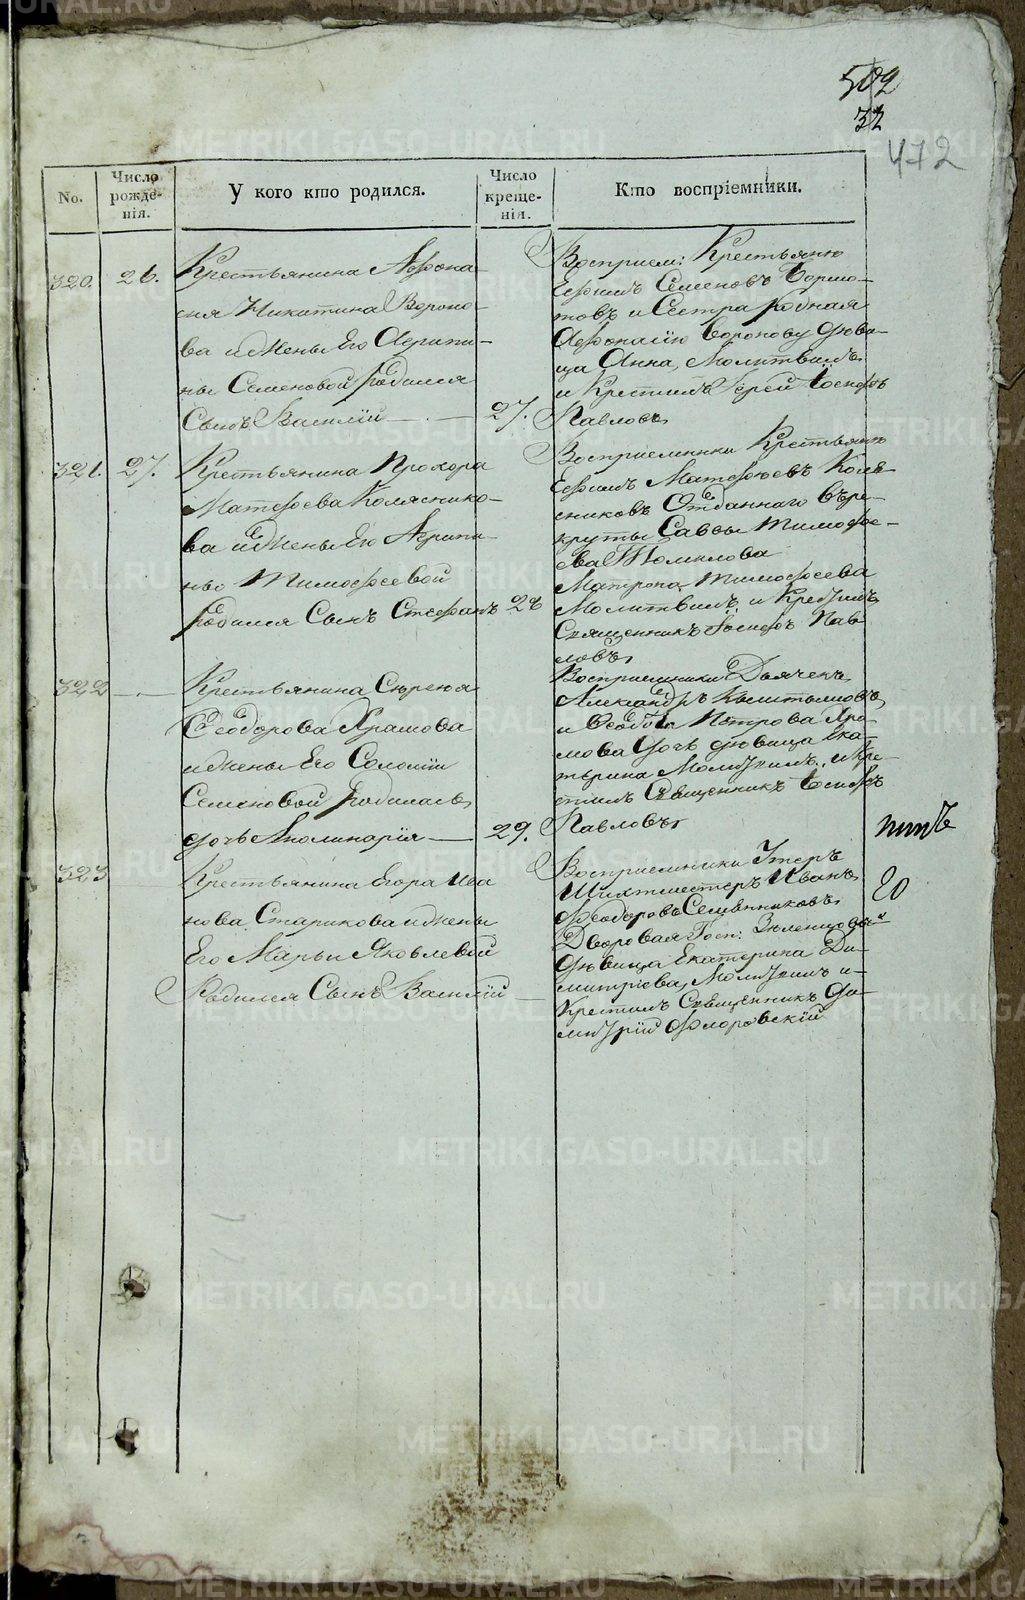 509
32
472
No.
Число рожде-нія.
У кого кто родился.
Число креще-нія.
Кто воспріемники.
320. 26.
Крестьянина Афона-
сия Никитина Вороно-
ва и жены Его Агрипи-
ны Семеновой родился
Сынъ Василій
27.
Восприем: Крестьянинъ
Ефимъ Семеновъ
товъ и Сестра родная
Афонасію Воронову дѣви-
ца Анна, Молитвилъ
и Крестилъ Іерей Іосифъ
Павловъ
321. 27.
Крестьянина Прохора
Матфеева Колеснико-
ва и жены Его Агрипи-
ны Тимофеевой
родился Сынъ Стефанъ
28
Восприемники Крестьянинъ
Ефимъ Матфеевъ Коле-
сниковъ Отданнаго въ ре-
круты Саввы Тимофе-
ева Томилова
Матрона Тимофеева
Молитвилъ и Крестилъ
Священникъ Іосифъ Пав
ловъ
322
Крестьянина Сергея
Феодорова Храмова
и жены Его Соломіи
Семеновой родилась
дочь Аполинарія
29.
Восприемники Дьячекъ
Александръ
и Феодота Петрова Хра-
мова дочь дѣвица Ека-
терина Молитвилъ, и Кре-
стилъ Священникъ Іосифъ
Павловъ
323
Крестьянина Егора Ива
нова Старикова и жены
Его Марьи Яковлевой
Родился Сынъ Василій
Восприемники
Шихтмейстеръ Иванъ
Феодоровъ
Дворовая Госп: Зеленцовой
дѣвица Екатерина Ди-
митріева, Молитвилъ и
Крестилъ Священникъ Ди-
митрій Флоровскій
METRIKI.GASO-URAL.RU